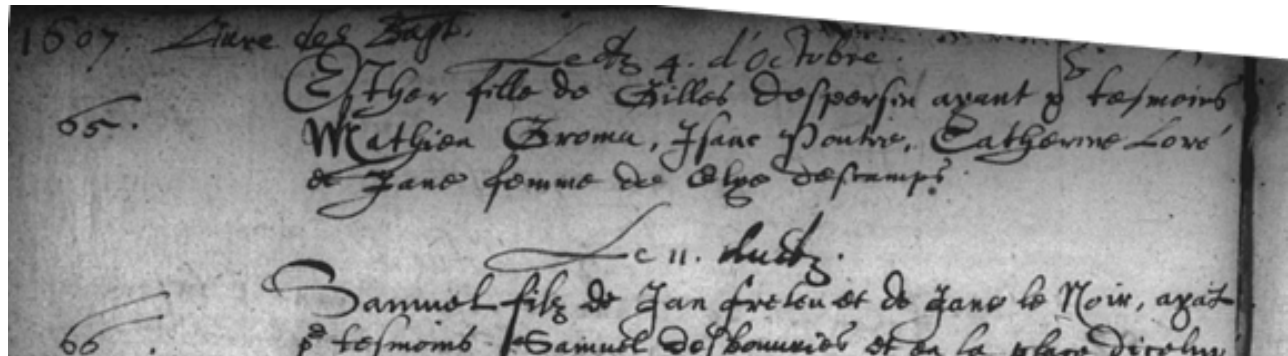 1607. Livre des Bapt.
Le 4. d'Octobre.
65. Esther fille de Gilles Despersin ayant p tesmoins
Mathieu Gromu, Isaac Poutre, Catherine Loré
et Jane femme de Elye Descamps.
Le 11. dudt.
Samuel filz de Jan et de Jane le Noir, ayāt
66. p tesmoins Samuel Desbouvries et en la place diceluy